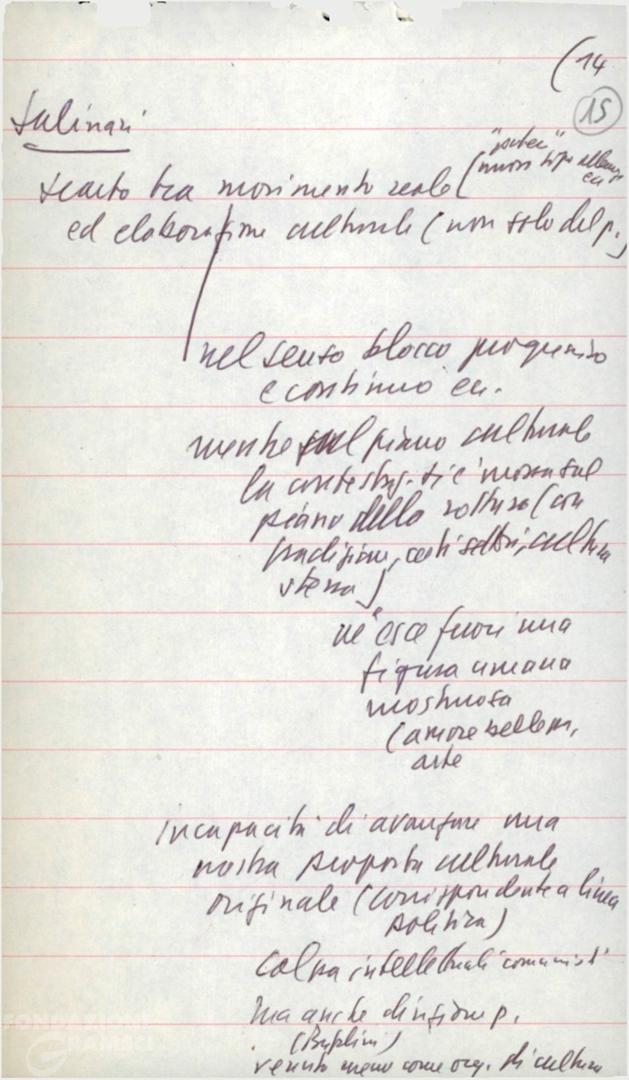 (14
15
Salinari
scarto tra movimento reale (
nuovi tipi alleanze
ecc
ed elaborazione culturale (non solo del p.)
nel senso blocco progressivo
e continuo ecc.
mentre sul piano culturale
la contestaz. si è mossa sul
piano della rottura (con
tradizione, certi settori, cultura
stessa)
ne esce fuori una
figura umana
mostruosa
(amore bellezza,
arte
incapacità di avanzare una
nostra proposta culturale
originale (corrispondente a linea
politica)
colpa intellettuali comunisti
ma anche direzione p.
venuto meno come org. di cultura
FONDAZIONE
GRAMSCI